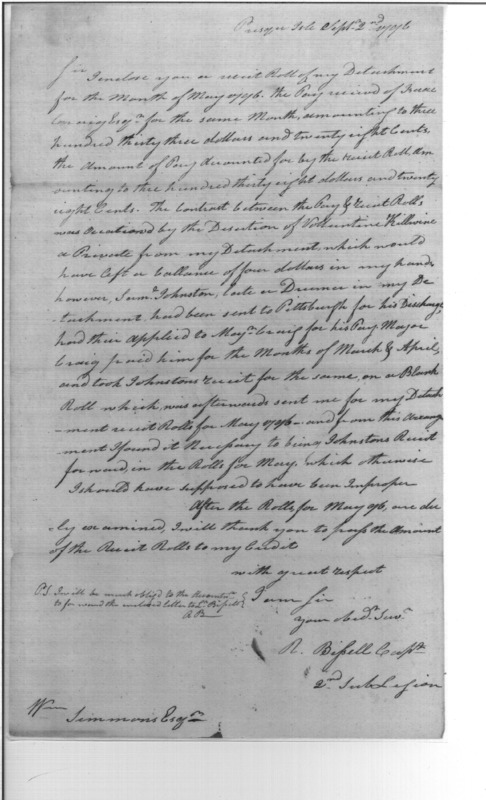 Presqu Isle Sept. 2nd 1796
Sir
I enclose you a reciet Roll of my Detachment
for the Month of May 1796. the Pay recieved of Isaac
Craig Esqr. for the same Month, amounting to three
hundred thirty three dollars and twenty eight Cents.
the Amount of Pay Accounted for by the reciet Roll Am
ounting to three hundred thirty eight dollars and twenty
eight Cents. The Contrast between the Pay & Reciet Rolls
was occationed by the Desertion of Volluntine Killwine
a Private from my Detachment, which would
have left a ballance of four dollars in my hands
however, Saml. Johnston, late a Drumer in my De
tachment, had been sent to Pittsburgh for his Discharge,
had their applied to Majr. Craig for his Pay Major
Craig paid him for the Months of March & April,
and took Johnstons reciet for the same, on a Blank
Roll which, was afterwards sent me for my Detach
-ment reciet Rolls for May 1796 - and from this Arrange
ment I found it Necessary to bring Johnstons Reciet
forward, in the Rolls for May, which otherwise
I should have supposed to have been Improper
After the Rolls for May 96, are du
ly examined, I will thank you to pass the Amount
of the Reciet Rolls to my Credit
with great respect
I am Sir
your Obedt. Servt.
R. Bissell Capt.
2nd Sub Legion
P.S. I will be much oblig'd to the Accountant
to forward the enclosed letter to Lt. Bissell
R B
Wm.
Simmons Esqr.